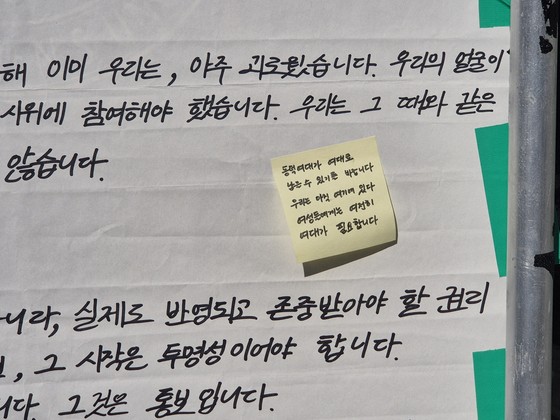 해 이미 우리는, 아주 괴로웠습니다. 우리의 얼굴이
시위에 참여해야 했습니다. 우리는 그 때와 같은
않습니다.
동덕여대가 여대로
남을 수 있기를 바랍니다
우리는 아직 여기에 있다
여성들에게는 여전히
여대가 필요합니다
아니라, 실제로 반영되고 존중받아야 할 권리
, 그 시작은 투명성이어야 합니다.
니다. 그것은 통보입니다.